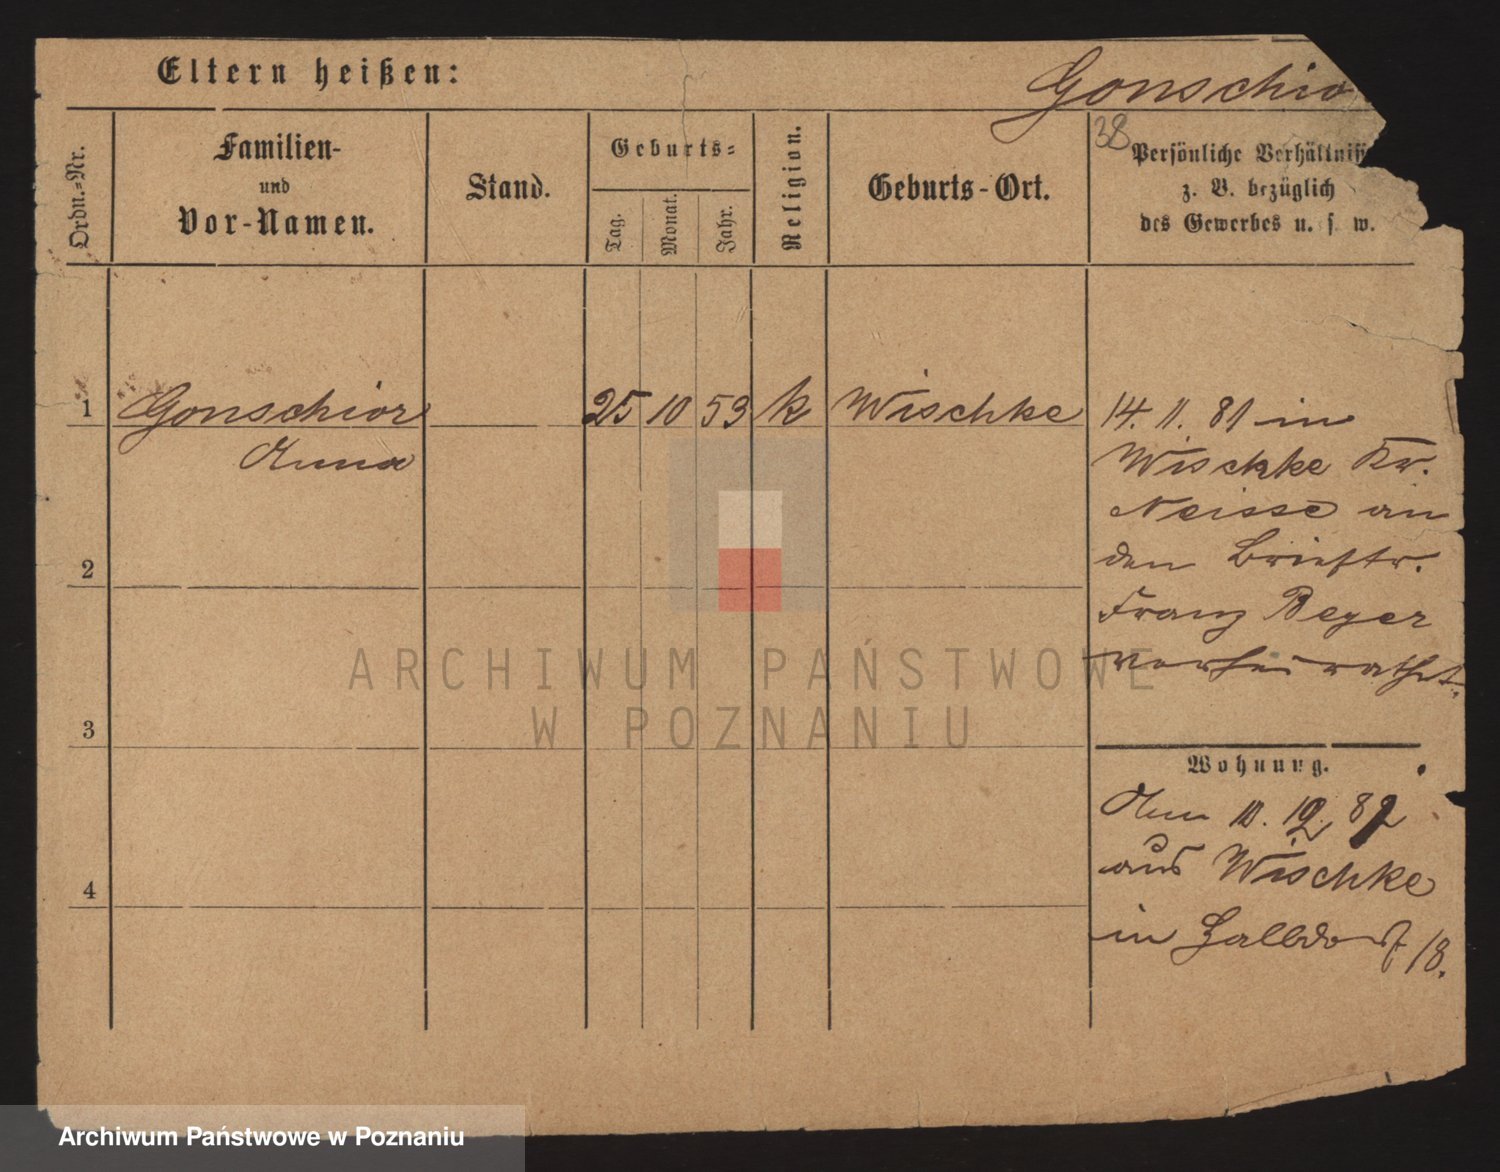 Eltern heißen:
Gonschio
38
Ordn.=Nr.
Familien-
und
Vor-Namen.
Stand.
Geburts=
Tag.
Monat.
Jahr.
Religion.
Geburts-Ort.
Persönliche Verhältniss
z. B. bezüglich
des Gewerbes u. s. w.
1 Gonschior 25 10 53 k Wischke
Anna
14. 11. 81 in
Wischke Kr.
Neisse an
den Brieftr.
Franz Beyer
verheirathet.
2
3
4
Wohnung.
Am 10. 12. 82
aus Wischke
in 18.
ARCHIWUM PAŃSTWOWE
W POZNANIU
Archiwum Państwowe w Poznaniu